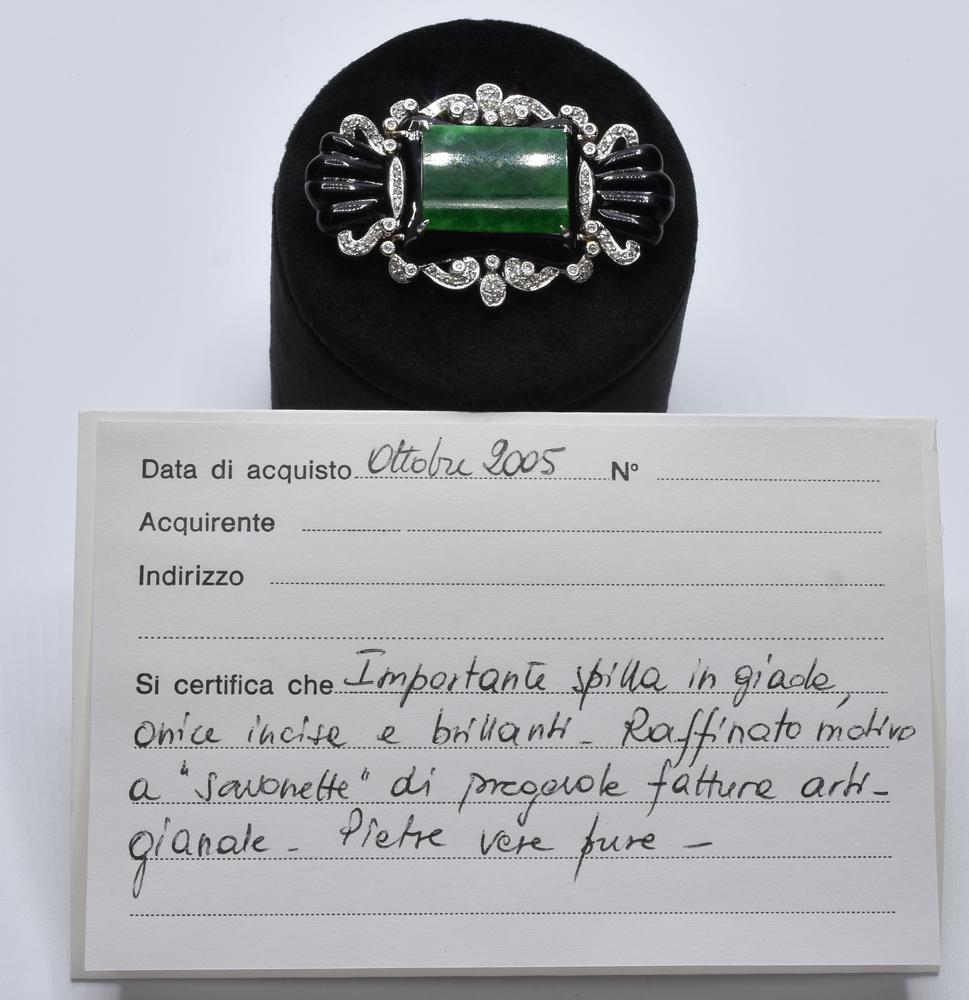 Data di acquisto Ottobre 2005 N°
Acquirente
Indirizzo
Si certifica che Importante spilla in giada,
onice incise e brillanti - Raffinato motivo
a "savonette" di pregevole fattura arti-
gianale - Pietre vere pure -